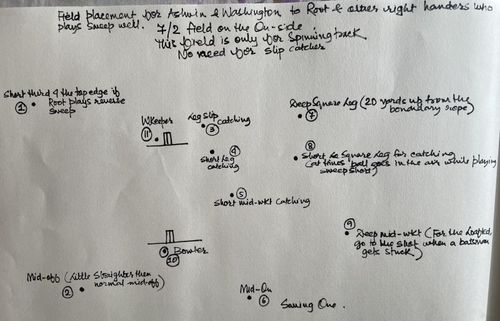 Field placement for Ashwin & Washington to Root & other right handers who
plays Sweep well. 7/2 field on the On-side
This field is only for Spinning track
No need for slip catcher
Short third 4 the top edge if
Root plays reverse
Sweep
1
WKeeper
11
Leg slip
catching
3
4
Short Leg
catching
5
Short mid-wkt catching
Deep Square Leg (20 yards up from the
boundary rope)
7
8
Short Square Leg for catching
(at times ball goes in the air while playing
sweep shot)
9
Deep mid-wkt (For the
go to the shot when a batsman
gets stuck)
Bowler
10
Mid-off (Little Straighter then
normal mid-off)
2
Mid-On
6
Saving One.